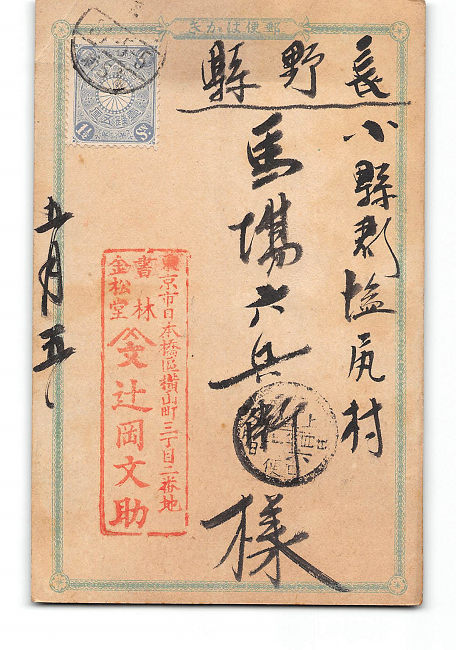 郵便はかき
長野縣
小縣郡塩尻村
馬場六兵衛
様
五月五
東京市日本橋區横山町三丁目二番地
書林
金松堂
文
辻岡文助
壹錢五厘
1½ Sn